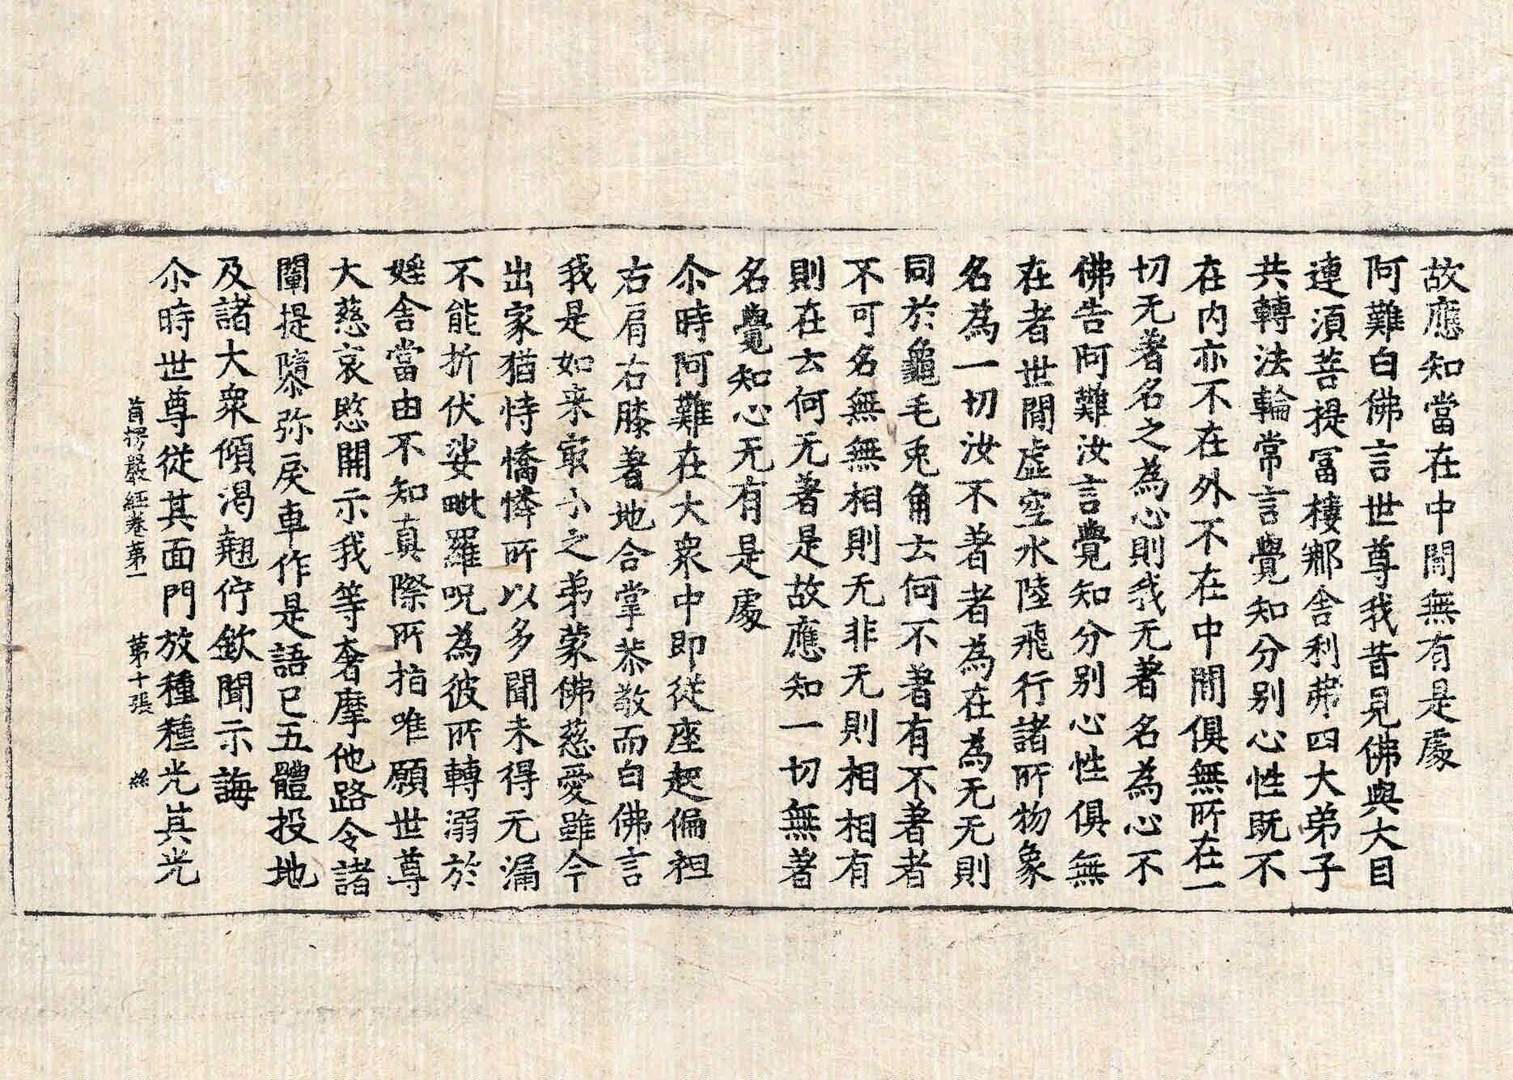 故應知當在中間無有是處
阿難白佛言世尊我昔見佛與大目
連須菩提冨樓䣍舎利弗四大弟子
共轉法輪常言覺知分别心性既不
在内亦不在外不在中間俱無所在一
切无著名之為心則我无著名為心不
佛告阿難汝言覺知分别心性俱無
在者世間虚空水陸飛行諸所物象
名為一切汝不著者為在為无无則
同於龜毛兎角云何不著有不著者
不可名無無相則无非无則相相有
則在云何无著是故應知一切無著
名覺知心无有是處
尒時阿難在大衆中即從座起偏袒
右肩右膝著地合掌恭敬而白佛言
我是如来㝡小之弟蒙佛慈愛雖今
出家猶恃憍憐所以多聞未得无漏
不能折伏娑毗羅呪為彼所轉溺於
婬舎當由不知真際所指唯願世尊
大慈哀愍開示我等奢摩他路令諸
闡提隳弥戾車作是語已五體投地
及諸大衆傾渴翹佇欽聞示誨
首楞嚴經卷第一 第十張
尒時世尊從其面門放種種光其光